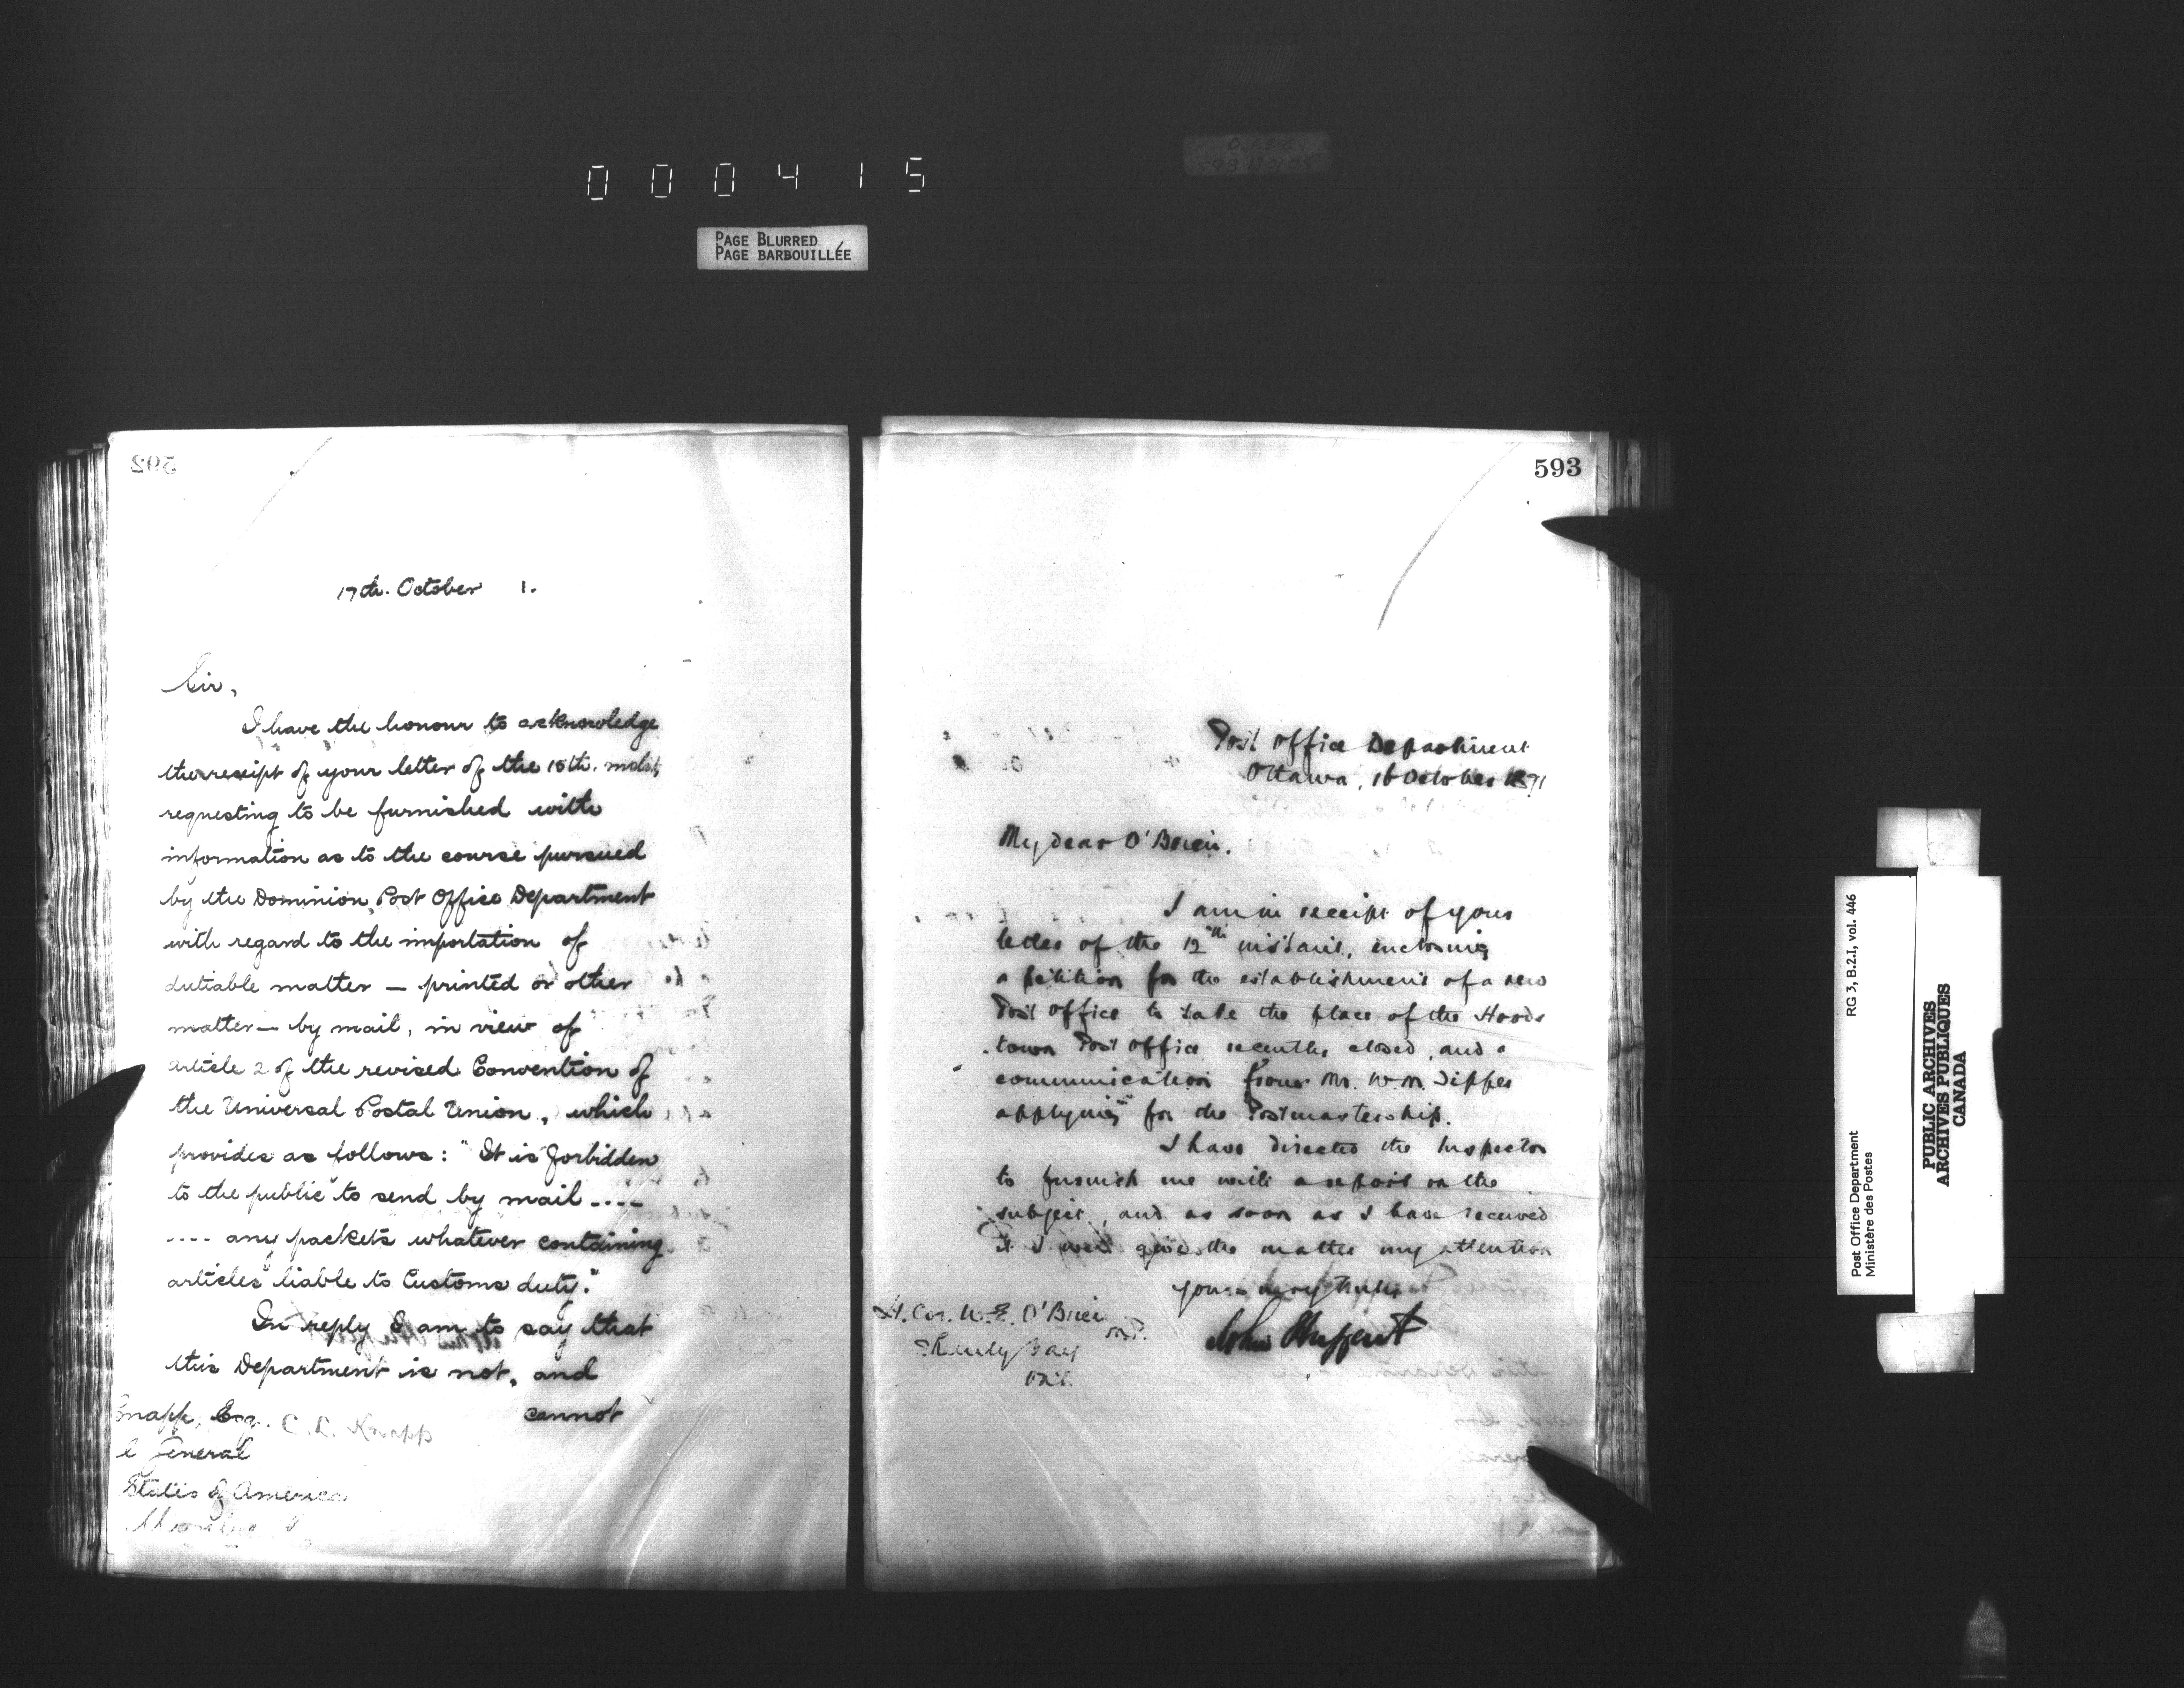 000415
PAGE BLURRED
PAGE BARBOUILLÉE
592
17th. October 1.
Sir,
I have the honour to acknowledge
the receipt of your letter of the 15th. inst.,
requesting to be furnished with
information as to the course pursued
by the Dominion Post Office Department
with regard to the importation of
dutiable matter — printed or other
matter — by mail, in view of
article 2 of the revised Convention of
the Universal Postal Union, which
provides as follows: "It is forbidden
to the public to send by mail ----
---- any packets whatever containing
articles liable to Customs duty."
In reply I am to say that
this Department is not, and
cannot
Knapp, Esq. C. L. Knapp
l General
States of America
593
Post Office Department
Ottawa, 16 October 1891
My dear O'Brien.
I am in receipt of your
letter of the 12th instant, enclosing
a petition for the establishment of a new
Post Office to take the place of the Hoods
town Post Office recently closed, and a
communication from Mr. W. M. Tipper
applying for the Postmastership.
I have directed the Inspector
to furnish me with a report on the
subject, and as soon as I have received
it I will give the matter my attention
Yours very truly
John Haggart
Lt. Col. W. E. O'Brien
M.P.
Shanty Bay
Ont.
Post Office Department
Ministère des Postes
RG 3, B.2.I, vol. 446
PUBLIC ARCHIVES
ARCHIVES PUBLIQUES
CANADA